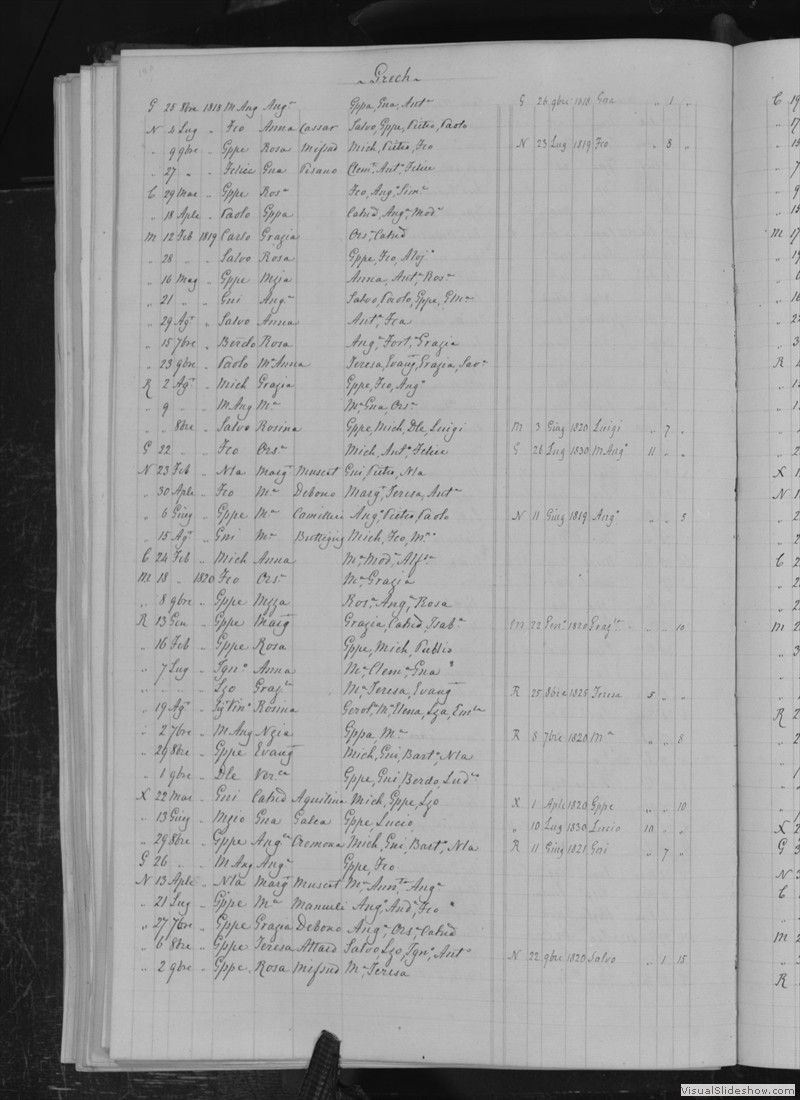 Grech
G 25 8bre 1818 M Ang Angª Gppa, Gna, Antª G 26 9bre 1818 Gna " 1 "
N 4 Lug " Fco Anna Cassar Salvo, Gppe, Pietro, Paolo
" 9 9bre " Gppe Rosa Mifsud Mich, Pietro, Fco N 23 Lug 1819 Fco " 8 "
" 27 " " Felice Gna Pisano Clemª, Antª, Felice
C 29 Mar " Gppe Rosª Fco, Angª, Simª
" 18 Aple " Paolo Gppa Catud, Angª, Modª
M 12 Feb 1819 Carlo Grazia Orsª, Catud
" 28 " " Salvo Rosa Gppe, Fco, Aloj
" 16 Mag " Gppe Mzia Anna, Antª, Rosª
" 21 " " Gni Angª Salvo, Paolo, Gppe, Gmª
" 29 Agº " Salvo Anna Antª, Fca
" 15 7bre " Bordo Rosa Angª, Fortª, Grazia
" 23 9bre " Paolo Mª Anna Teresa, Evang, Grazia, Savª
R 2 Agº " Mich Grazia Gppe, Fco, Angº
" 9 " " M Ang Mª Mª, Gna, Orsª
" " 8bre " Salvo Rosina Gppe, Mich, Dle, Luigi M 3 Giug 1820 Luigi " 7 "
G 22 " " Fco Orsª Mich, Antº, Felice G 26 Lug 1830 M Angº 11 " "
N 23 Feb " Nla Marg Muscat Gni, Pietro, Nla
" 30 Aple " Fco Mª Debono Marg, Teresa, Antª
" 6 Giug " Gppe Mª Camilleri Angº, Pietro, Paolo N 11 Giug 1819 Angº " " 5
" 15 Agº " Gni Mª Buttigieg Mich, Fco, Mª
C 24 Feb " Mich Anna Mª, Modª, Alfª
M 18 " 1820 Fco Orsª Mª, Grazia
" 8 9bre " Gppe Mzza Rosª, Angª, Rosa
R 13 Gen " Gppe Marg Grazia, Catud, Isabª M 22 Genº 1820 " " 10
" 16 Feb " Gppe Rosa Gppe, Mich, Publio
" 7 Lug " Ignº Anna Mª, Clemª, Gna
" " " " Lzo Grazª Mª, Teresa, Evang R 25 8bre 1825 Teresa 5 " "
" 19 Agº " Rosina Gerolª, Mª, Elena, Lza, Emª
" 2 7bre " M Ang Nzia Gppa, Mª R 8 7bre 1820 Mª " " 8
" 29 8bre " Gppe Evang Mich, Gni, Bartº, Nla
" 1 9bre " Dle Verca Gppe, Gni, Bordo, Ludª
X 22 Mar " Gni Catud Aquilina Mich, Gppe, Lzo X 1 Aple 1820 Gppe " " 10
" 13 Giug " Mzio Gna Galea Gppe, Lucio " 10 Lug 1830 Lucio 10 " "
" 29 8bre " Gppe Angca Cremona Mich, Gni, Bartº, Nla R 11 Giug 1821 Gni " 7 "
G 26 " " M Ang Angª Gppe, Fco
N 13 Aple " Nla Marg Muscat Mª, Annª, Angª
" 21 Lug " Gppe Mª Manueli Angº, Andº, Fco
" 27 7bre " Gppe Grazia Debono Angª, Orsª, Catud
" 6 8bre " Gppe Teresa Attard Salvo, Lzo, Ignº, Antº N 22 9bre 1820 Salvo " 1 15
" 2 9bre " Gppe Rosa Mifsud Mª, Teresa
VisualSlideshow.com